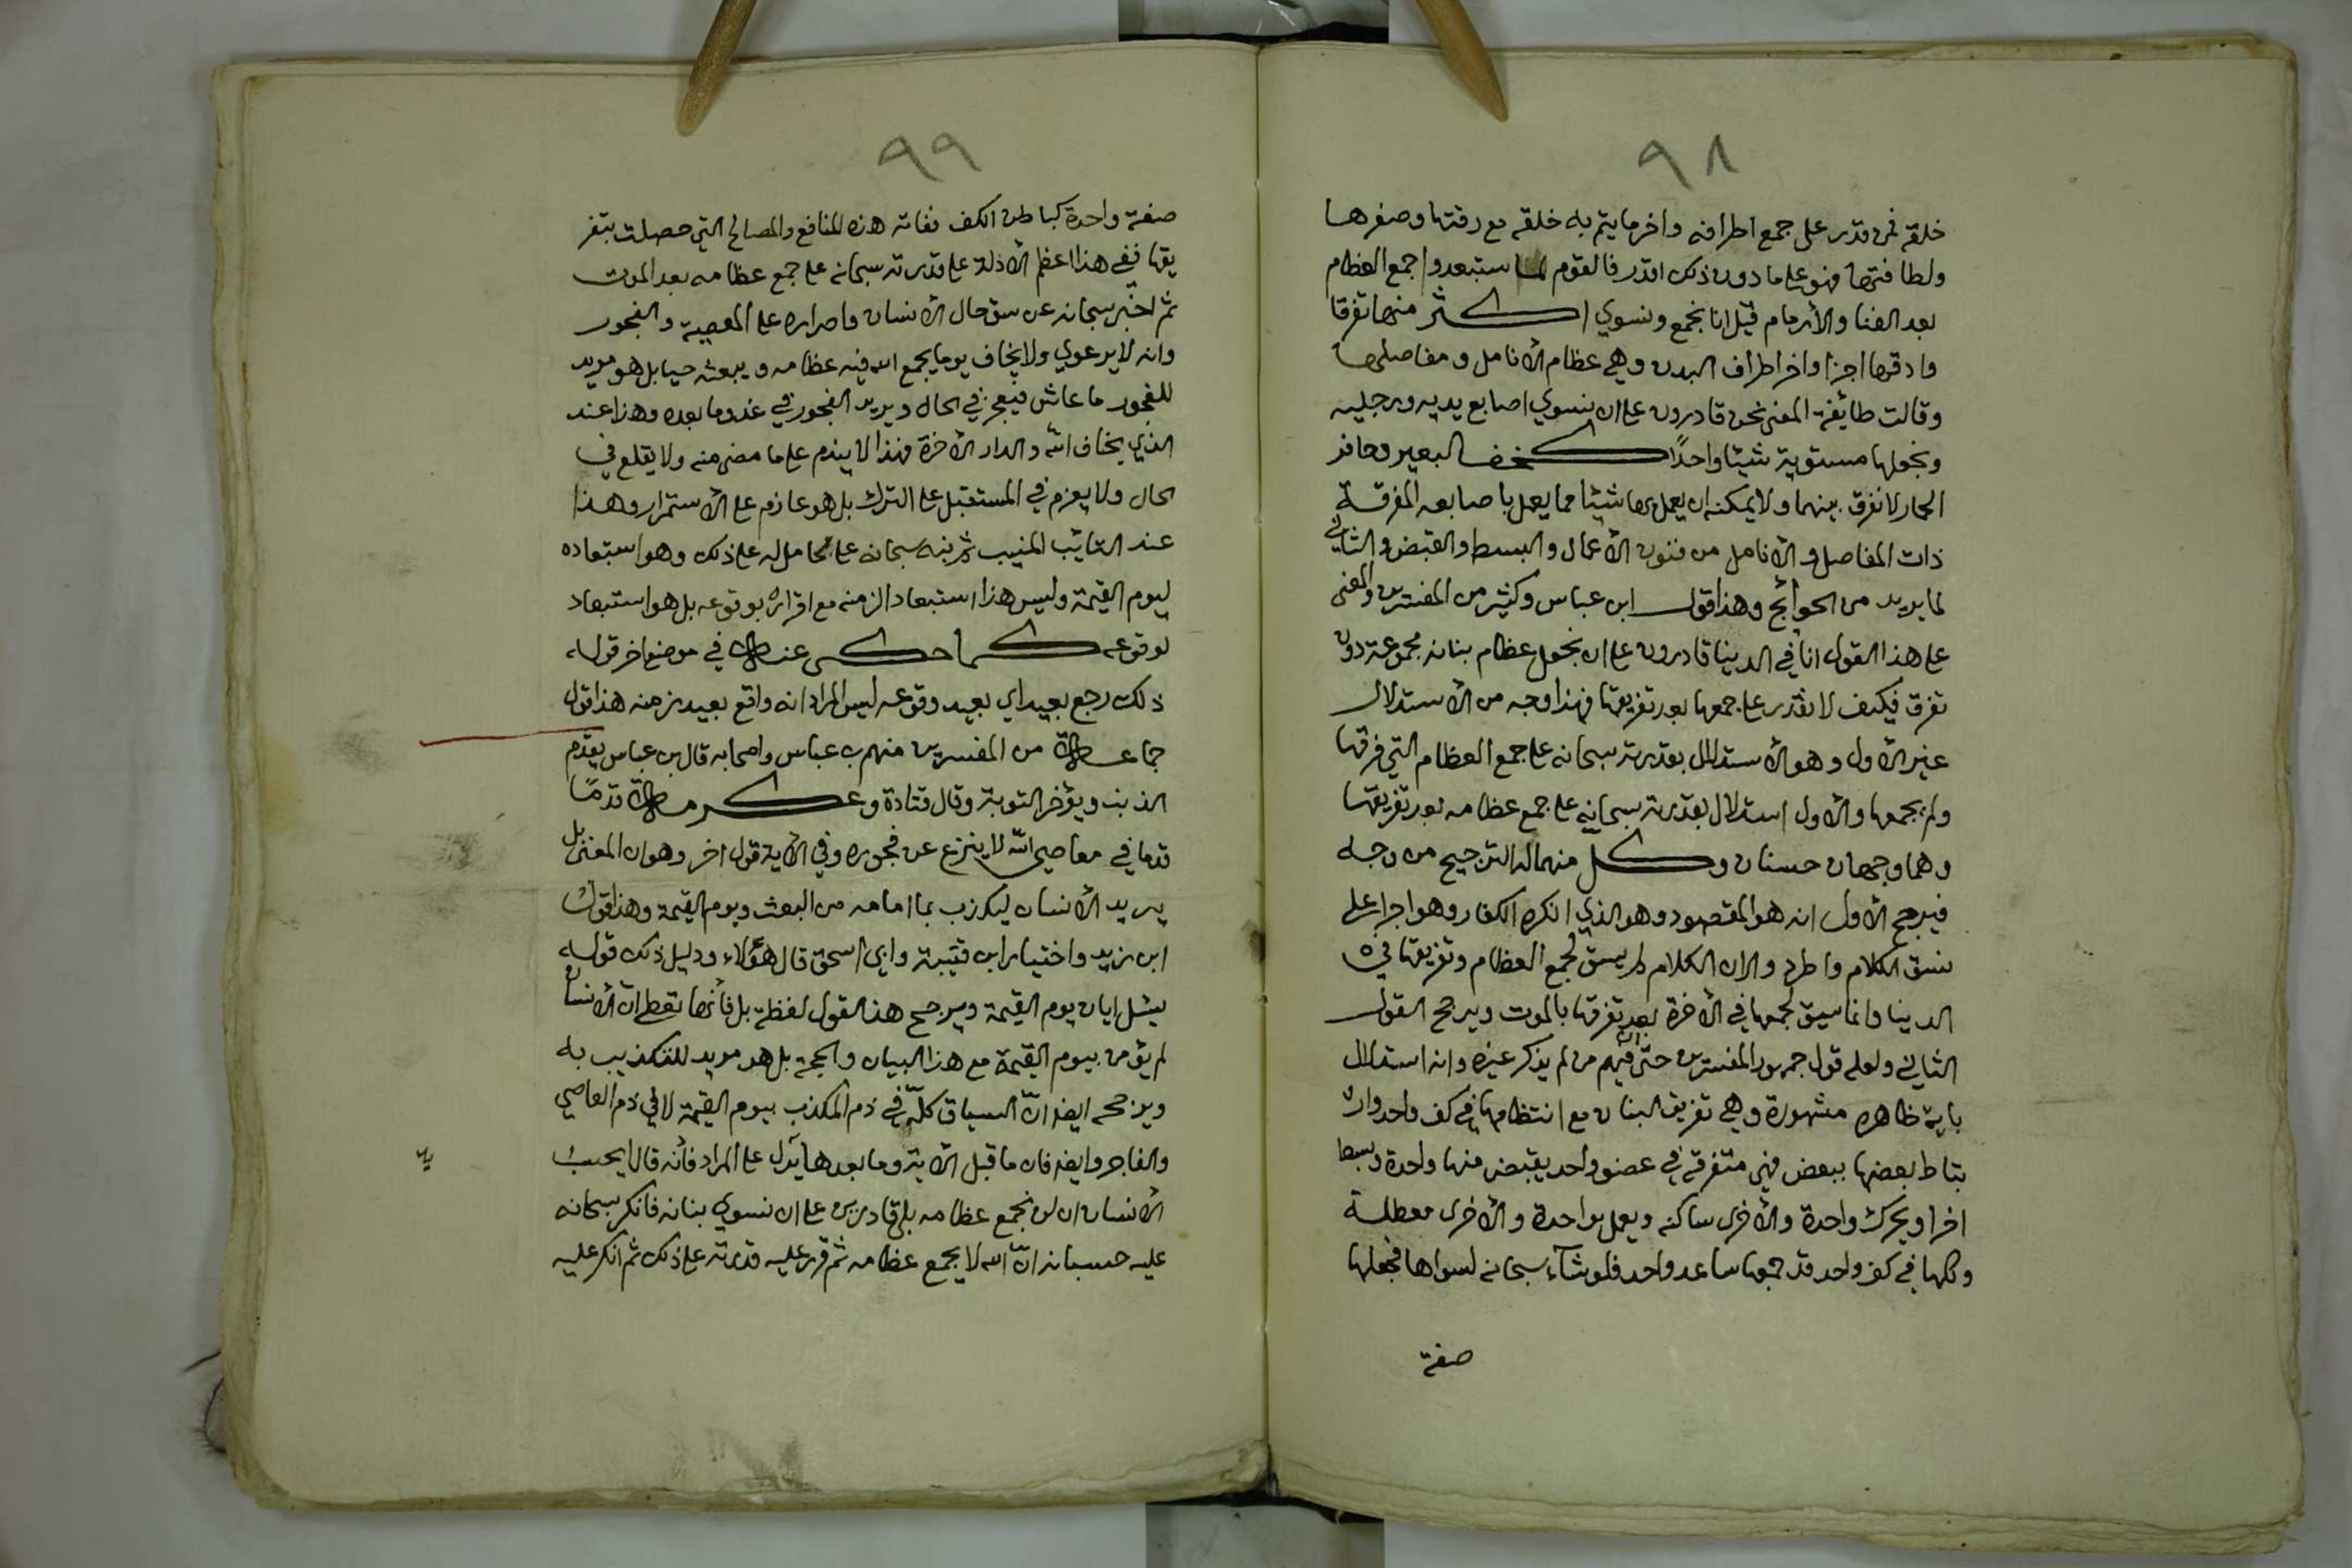 ٩٨
خلقه فمن قدر على جمع اطرافه واخر ما يتم به خلقه مع دقتها وصغرها
ولطافتها فهو على ما دون ذلك اقدر فالقوم لما استبعدوا جمع العظام
بعد الفنا والأرمام قيل انا نجمع ونسوي اكثر منها تفرقا
وادقها اجزا واخر اطراف البدن وهي عظام الأنامل ومفاصلها
وقالت طائفة المعنى نحن قادرون على ان نسوي اصابع يديه ورجليه
ونجعلها مستوية شيئا واحدًا كخف البعير وحافر
الحمار لا نفرق بينهما ولا يمكنه ان يعمل بها شيئا مما يعمل باصابعه المفرقة
ذات المفاصل والأنامل من فنون الأعمال والبسط والقبض والتاني
لما يريد من الحوائج وهذا قول ابن عباس وكثير من المفسرين والمعنى
على هذا القول انا في الدينا قادرون على ان نجعل عظام بنانه مجموعة دون
تفرق فكيف لا نقدر على جمعها بعد تفريقها فهذا وجه من الأستدلال
غير الأول وهو الأستدلال بقدرته سبحانه على جمع العظام التي فرقها
ولم يجمعها والأول استدلال بقدرته سبحانه على جمع عظامه بعد تفريقها
وهما وجهان حسنان وكل منهما له الترجيح من وجه
فيرجح الأول انه هو المقصود وهو الذي انكره الكفار وهو اجرا على
نسق الكلام واطرد والان الكلام لم يسق لجمع العظام وتفريقها في
الدينا وانما سيق لجمعها في الأخرة بعد تفرقها بالموت ويرجح القول
الثاني ولعله قول جمهور المفسرين حتى ان فيهم من لم يذكر غيره وانه استدلال
باية ظاهره مشهورة وهي تفريق البنان مع انتظامها في كف واحد وار
بتاط بعضها ببعض فهي متفرقة في عضو واحد يقبض منها واحدة ويبسط
اخرا ويحرك واحدة والأخرى ساكنه ويعمل بواحدة والأخرى معطلة
وكلها في كف واحد قد جمعها ساعد واحد فلو شآء سبحانه لسواها فجعلها
صفة
٩٩
صفة واحدة كباطن الكف ففاته هذه المنافع والمصالح التي حصلت بتفر
يقها ففي هذا اعظم الأدلة على قدرته سبحانه على جمع عظامه بعد الموت
ثم اخبر سبحانه عن سوء حال الأنسان واصراره على المعصية والفجور
وانه لا يرعوي ولا يخاف يوما يجمع الله فيه عظامه ويبعثه حيا بل هو مريد
للفجور ما عاش فيفجر في الحال ويريد الفجور في غد وما بعده وهذا عند
الذي يخاف الله والدار الأخرة فهذا لا يندم على ما مضى منه ولا يقلع في
الحال ولا يعزم في المستقبل على الترك بل هو عازم على الأستمرار وهذا
عند التائب المنيب ثم نبه سبحانه على الحامل له على ذلك وهو استبعاده
ليوم القيمة وليس هذا استبعاد الزمنه مع اقراره بوقوعه بل هو استبعاد
لوقوعه كما حكى عنه في موضع اخر قوله
ذلك رجع بعيد اي بعيد وقوعه ليس المراد انه واقع بعيد زمنه هذا قول
جماعة من المفسرين منهم بن عباس واصحابه قال بن عباس يقدم
الذنب ويؤخر التوبة وقال قتادة وعكرمة قدمًا
قدما في معاصي الله لا ينزع عن فجوره وفي الأية قول اخر وهو ان المعنى بل
يريد الأنسان ليكذب بما امامه من البعث ويوم القيمة وهذا قول
ابن زيد واختيار ابن قتيبة وابي اسحق قال هؤلاء ودليل ذلك قوله
يسئل ايان يوم القيمة ويرجح هذا القول لفظة بل فأنها تعطي ان الأنسان
لم يؤمن بيوم القيمة مع هذا البيان والحجة بل هو مريد للتكذيب به
ويرجحه ايضا انّ السياق كلّه في ذم المكذب بيوم القيمة لا في ذم العاصي
والفاجر وايضا فان ما قبل الأية وما بعدها يدل على المراد فأنه قال ايحسب
الأنسان ان لن نجمع عظامه بلى قادرين على ان نسوي بنانه فانكر سبحانه
عليه حسبانه انّ الله لا يجمع عظامه ثم قرر عليه قدرته على ذلك ثم انكر عليه